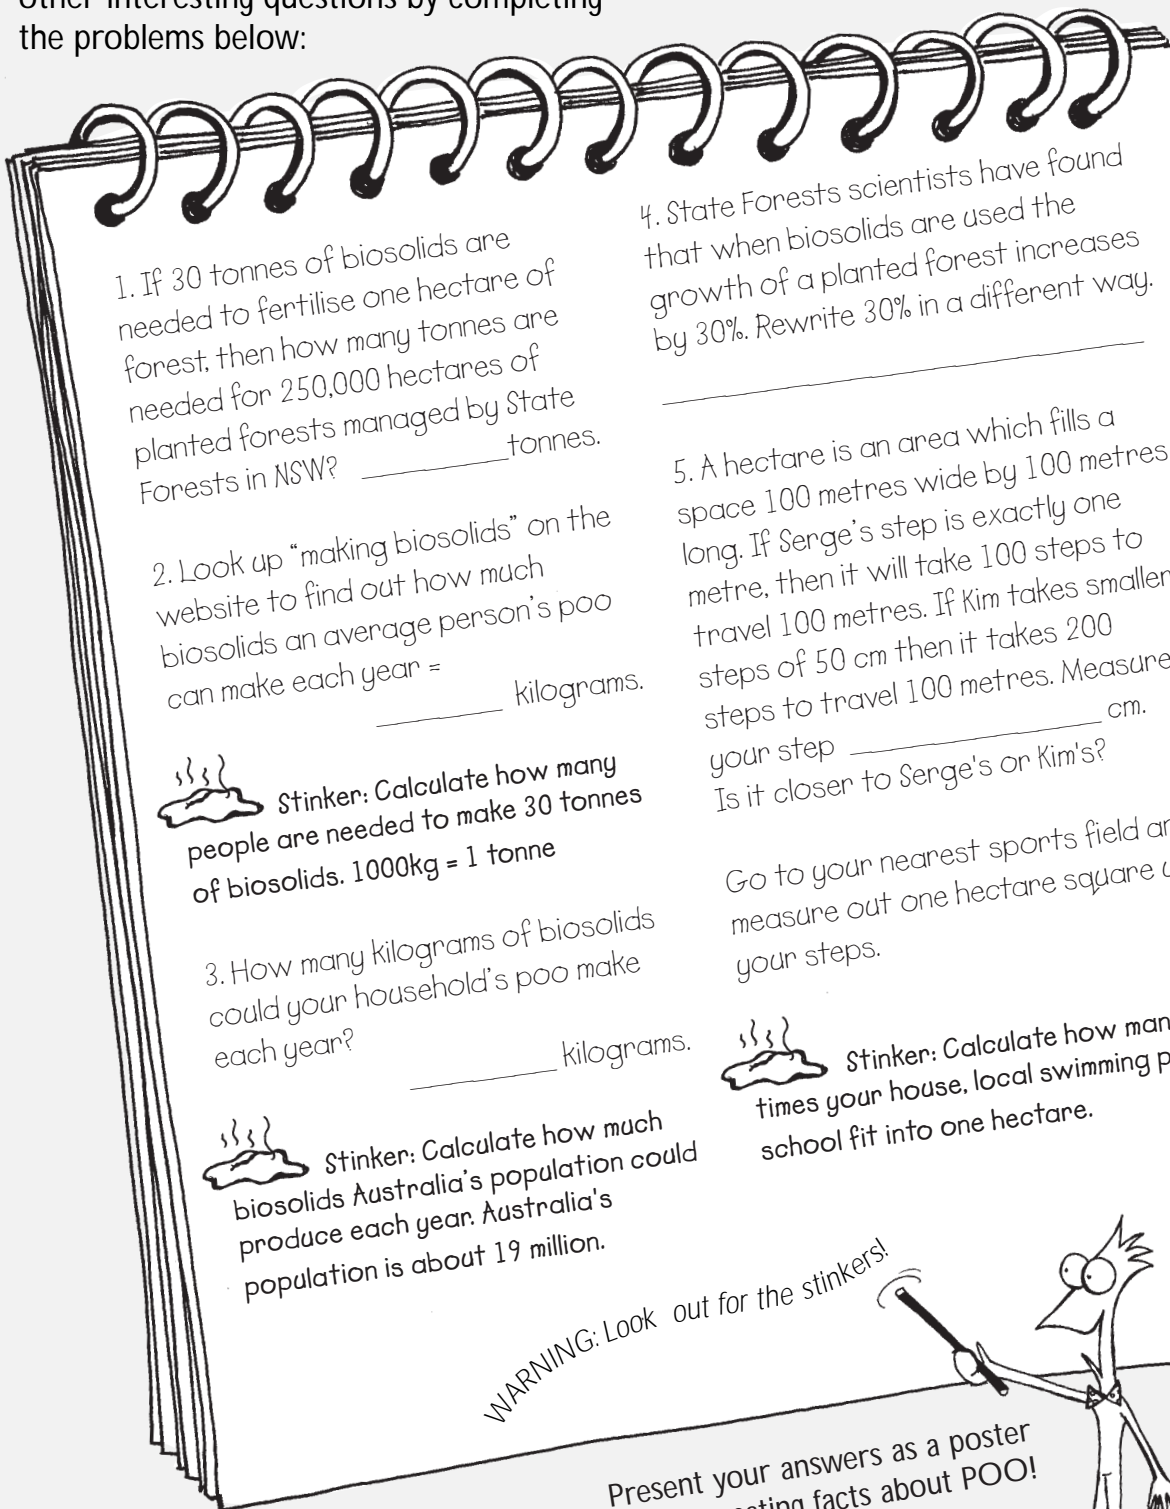 the problems below:
1. If 30 tonnes of biosolids are
needed to fertilise one hectare of
forest, then how many tonnes are
needed for 250,000 hectares of
planted forests managed by State
Forests in NSW? __________ tonnes.
2. Look up “making biosolids” on the
website to find out how much
biosolids an average person’s poo
can make each year =
__________ kilograms.
Stinker: Calculate how many
people are needed to make 30 tonnes
of biosolids. 1000kg = 1 tonne
3. How many kilograms of biosolids
could your household’s poo make
each year?
__________ kilograms.
Stinker: Calculate how much
biosolids Australia’s population could
produce each year. Australia's
population is about 19 million.
4. State Forests scientists have found
that when biosolids are used the
growth of a planted forest increases
by 30%. Rewrite 30% in a different way.
5. A hectare is an area which fills a
space 100 metres wide by 100 metres
long. If Serge’s step is exactly one
metre, then it will take 100 steps to
travel 100 metres. If Kim takes smaller
steps of 50 cm then it takes 200
steps to travel 100 metres. Measure
your step __________ cm.
Is it closer to Serge's or Kim's?
Go to your nearest sports field
measure out one hectare square
your steps.
Stinker: Calculate how
times your house, local swimming
school fit into one hectare.
WARNING: Look out for the stinkers!
Present your answers as a poster
facts about POO!